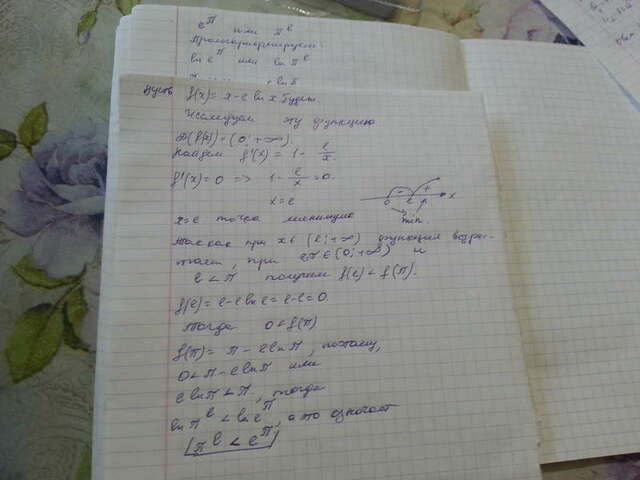 e^π или π^e
Прологарифмируем:
ln e^π или ln π^e
Пусть f(x) = x - e ln x Тогда
Исследуем эту функцию
D(f(x)) = (0; +∞)
Найдем f'(x) = 1 - e/x
f'(x) = 0 => 1 - e/x = 0.
x = e
- +
0 e π x
x = e точка минимума
min.
Так как при x ∈ (e; +∞) функция возрас-
тает, при e, π ∈ (0; +∞) и
e < π получим f(e) < f(π).
f(e) = e - e ln e = e - e = 0.
Тогда 0 < f(π)
f(π) = π - e ln π, поэтому,
0 < π - e ln π или
e ln π < π, тогда
ln π^e < ln e^π, а это означает
π^e < e^π